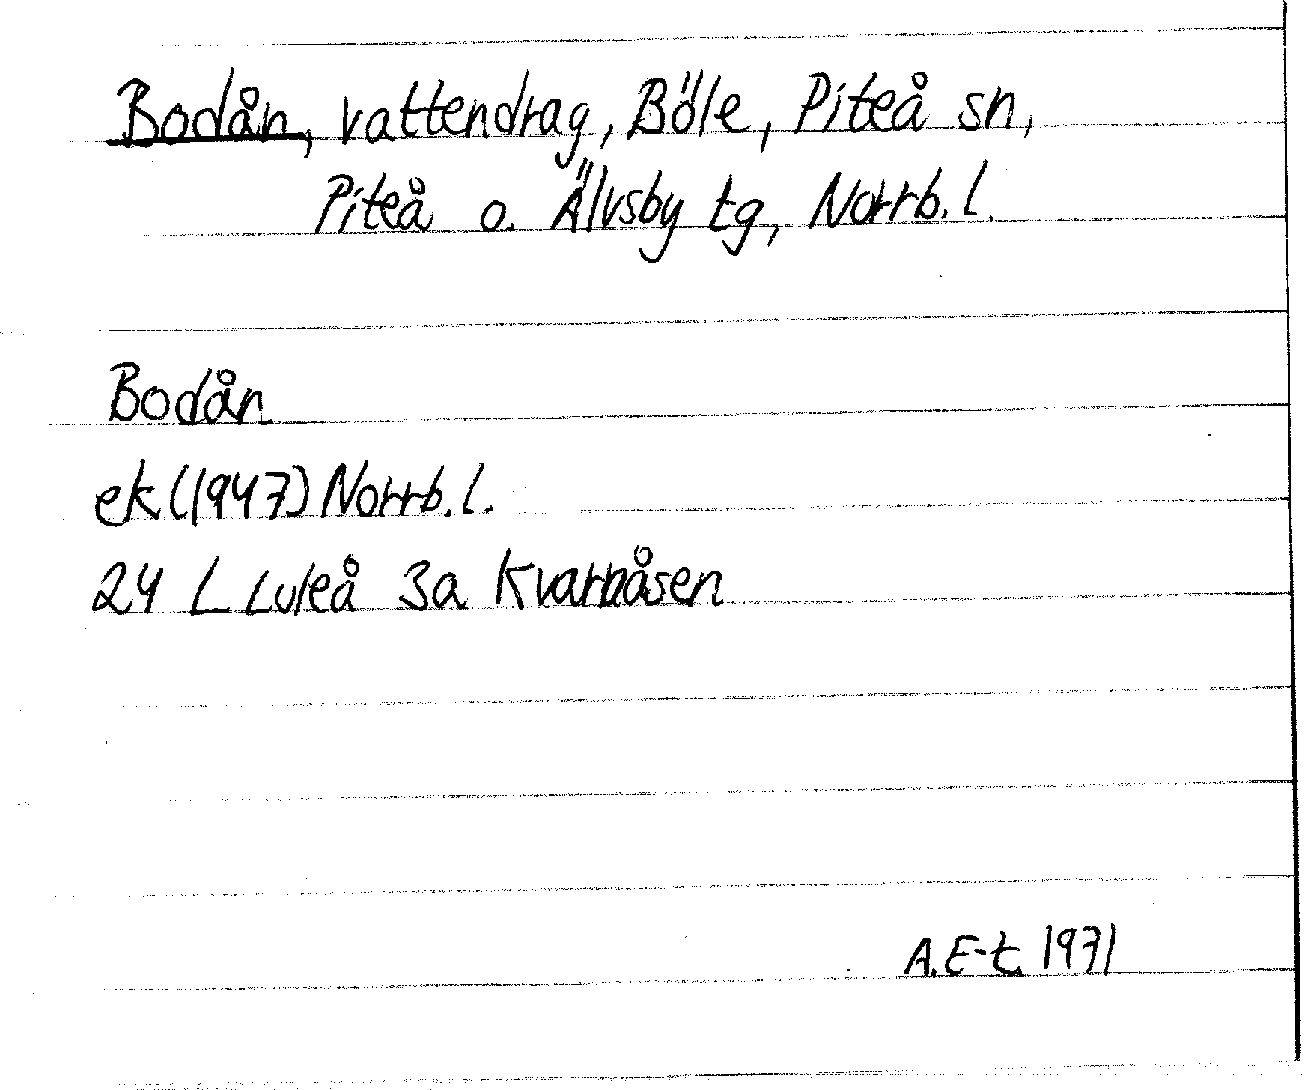 Bodån, vattendrag, Böle, Piteå sn,
Piteå o. Älvsby tg, Norrb. l.
Bodån
ek (1947) Norrb. l.
24 L Luleå 3a Kvarnåsen
A. E-t. 1971